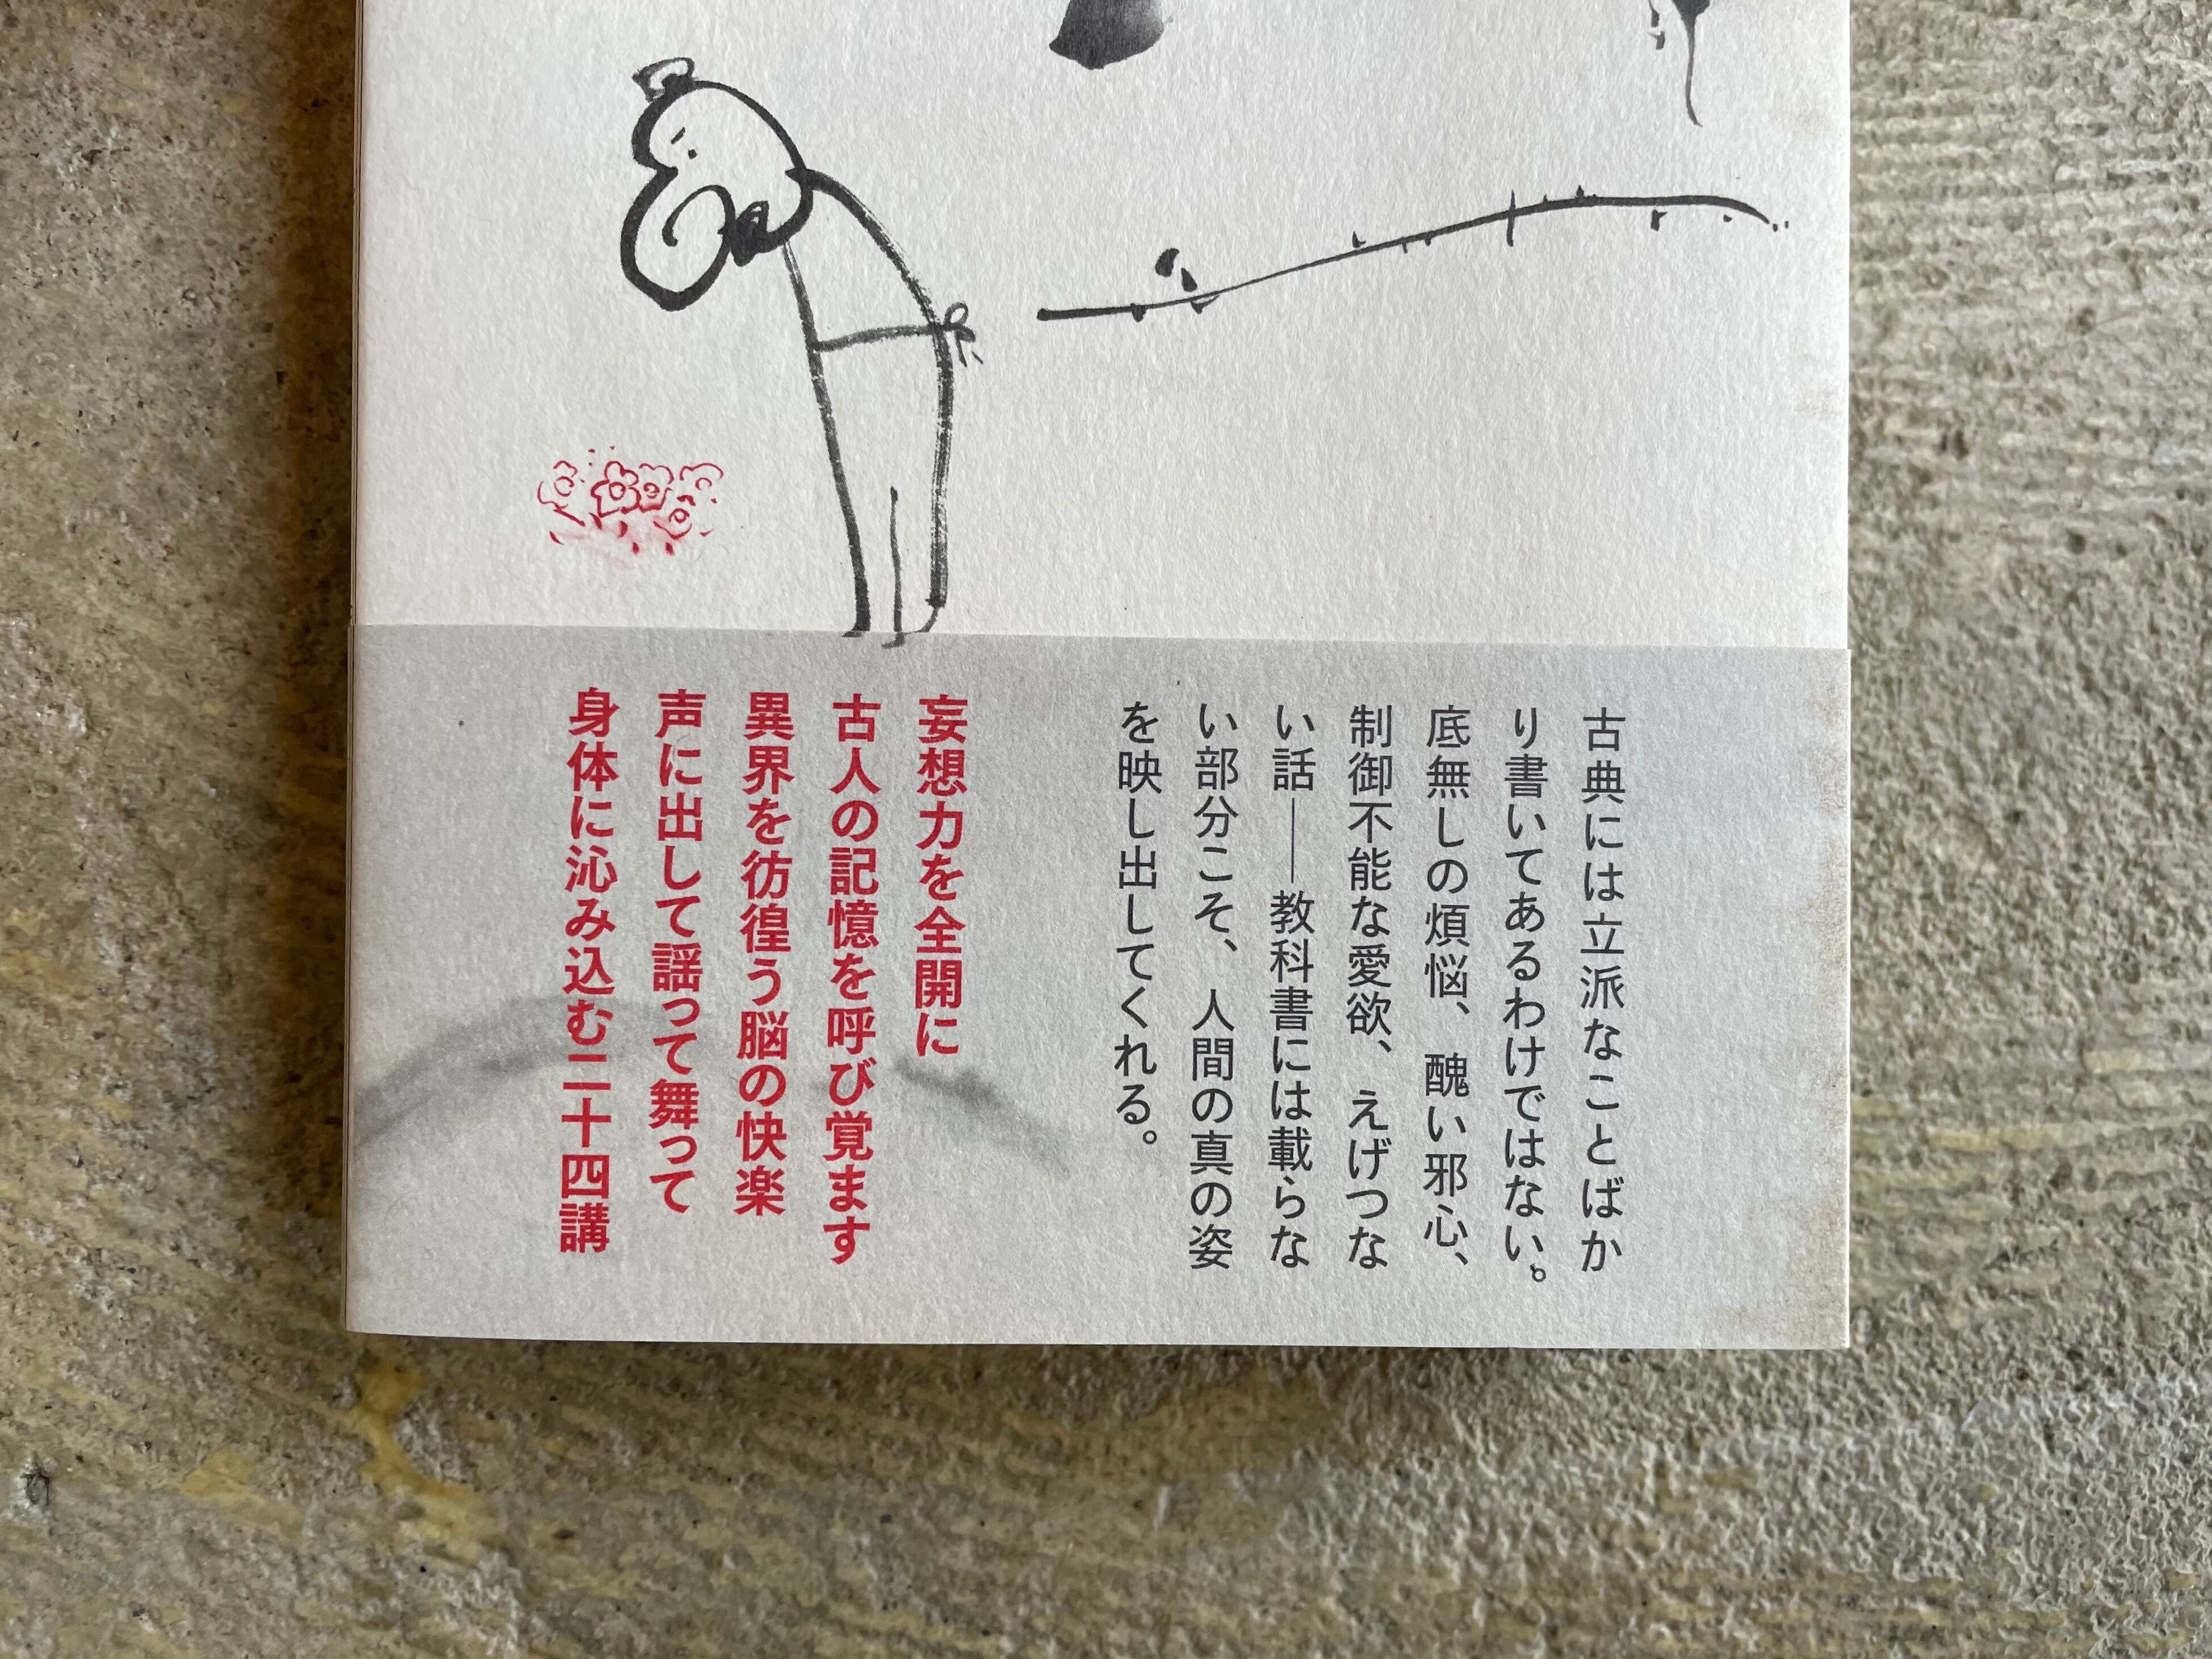 古典には立派なことばか
り書いてあるわけではない。
底無しの煩悩、醜い邪心、
制御不能な愛欲、えげつな
い話──教科書には載らな
い部分こそ、人間の真の姿
を映し出してくれる。
妄想力を全開に
古人の記憶を呼び覚ます
異界を彷徨う脳の快楽
声に出して謡って舞って
身体に沁み込む二十四講